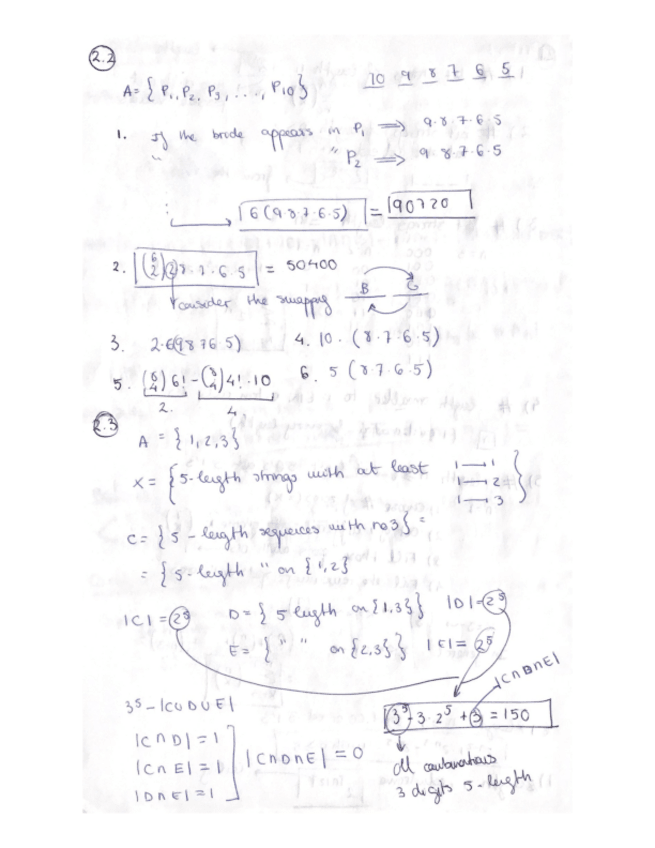 2.2
A = { P1, P2, P3, ..., P10 } 10 9 8 7 6 5
1. If the bride appears in P1 ⟹ 9·8·7·6·5
" " P2 ⟹ 9 8·7·6·5
6(9 8·7·6·5) = 90720
2. (6 2) 2 8·7·6·5 = 50400
consider the swapping B G
3. 2·6(9 8 7 6 5) 4. 10·(8·7·6·5)
5. (8 4) 6! - (8 4) 4!·10 6. 5 (8·7·6·5)
2. 4
2.3
A = {1, 2, 3}
X = { 5-length strings with at least 1 — 1
1 — 2
1 — 3 }
C = { 5-length sequences with no 3 } =
= { 5-length " on {1,2}
|C| = 2^5 D = { 5 length on {1,3} } |D| = 2^5
E = { " " on {2,3} } |E| = 2^5
|C∩D∩E|
3^5 - |C∪D∪E| 3^5 - 3·2^5 + 3 = 150
|C∩D| = 1
|C∩E| = 1 |C∩D∩E| = 0
|D∩E| = 1
all combinations
3 digits 5-length